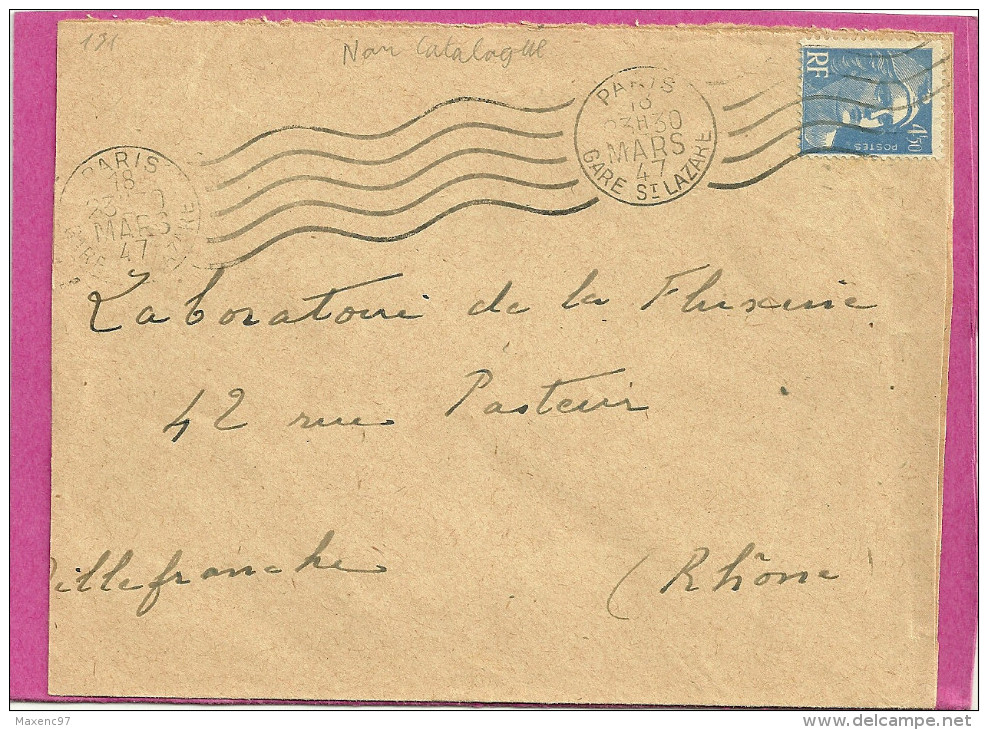 131
Non Catalogué
RF
4f50
POSTES
PARIS
18
23H30
MARS
47
GARE ST LAZARE
PARIS
18
23
MARS
47
GARE
Laboratoire de la Fluxine
42 rue Pasteur
Villefranche (Rhône)
Maxenc97
delcampe.net